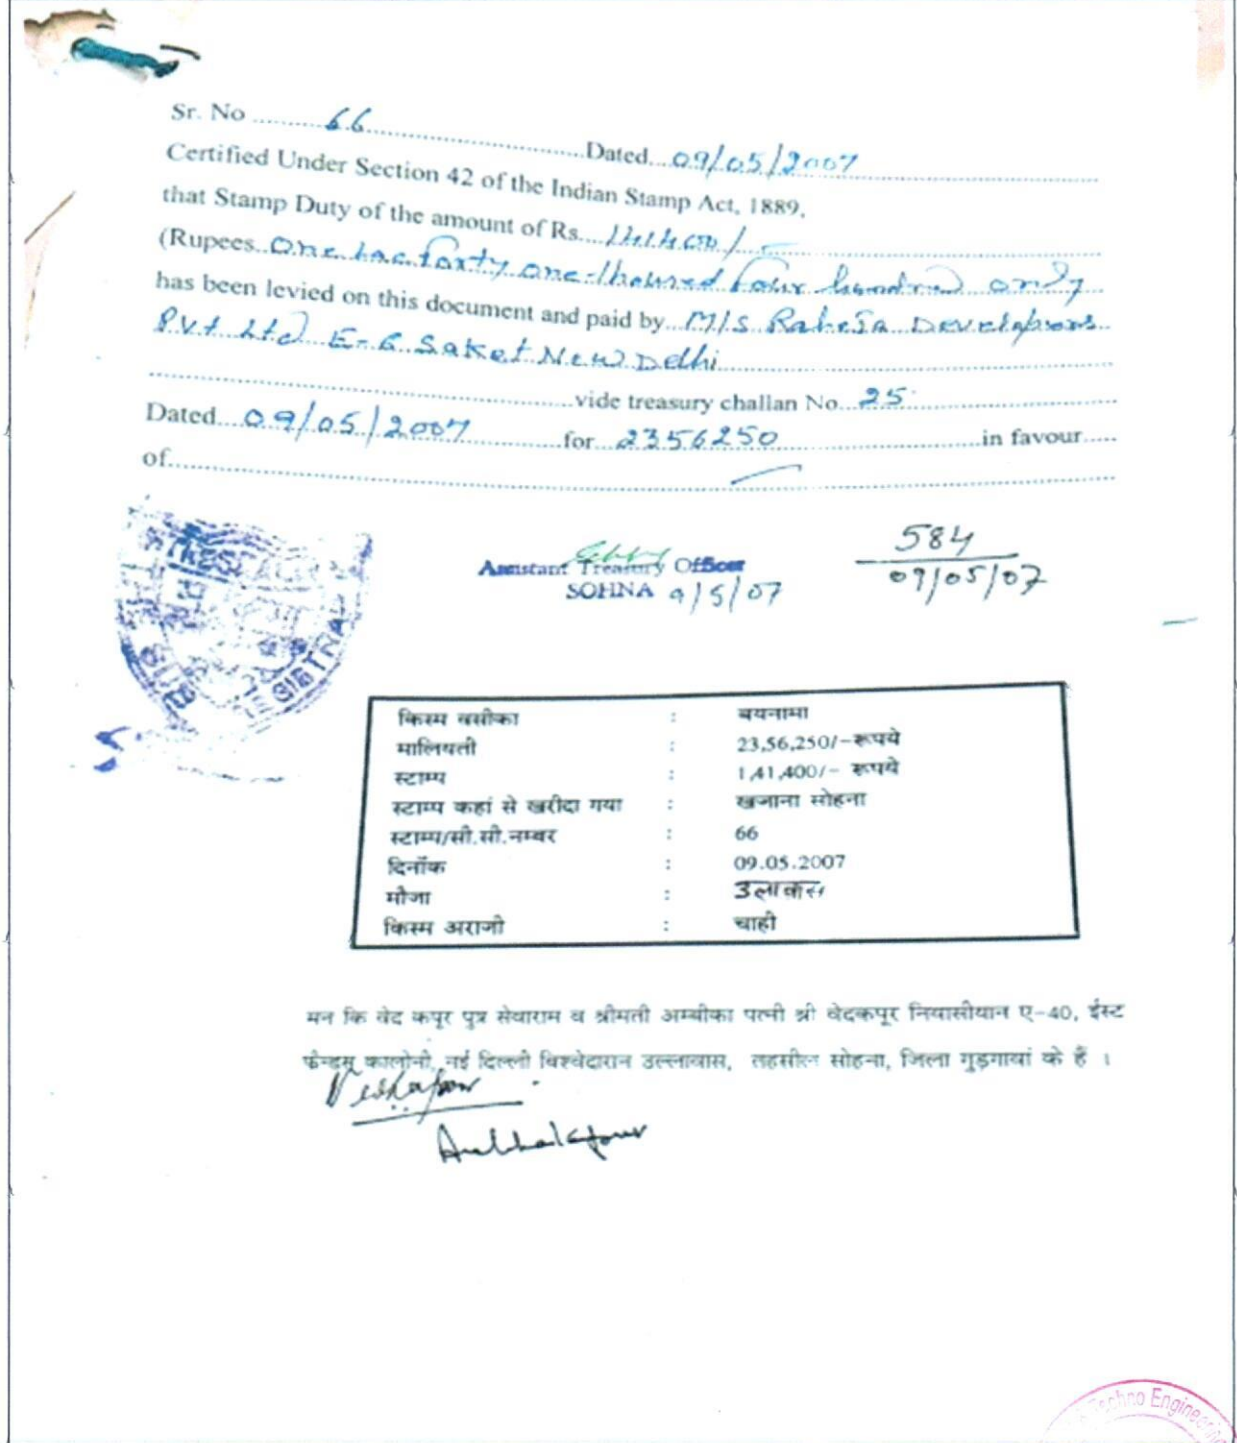 Sr. No ........66........Dated...09/05/2007
Certified Under Section 42 of the Indian Stamp Act, 1889,
that Stamp Duty of the amount of Rs....141400/-
(Rupees..One Lac forty one thoused four hundred only
has been levied on this document and paid by M/S Raheja Developers
Pvt Ltd E-6 Saket New Delhi
vide treasury challan No...25
Dated...09/05/2007......for...2356250......in favour.....
of.....
Assistant Treasury Officer
SOHNA 9/5/07
584
09/05/07
किस्म वसीका : बयनामा
मालियती : 23,56,250/-रूपये
स्टाम्प : 1,41,400/- रूपये
स्टाम्प कहां से खरीदा गया : खजाना सोहना
स्टाम्प/सी.सी.नम्बर : 66
दिनॉंक : 09.05.2007
मौजा :
किस्म अराजी : चाही
मन कि वेद कपूर पुत्र सेवाराम व श्रीमती अम्बीका पत्नी श्री वेदकपूर निवासीयान ए-40, ईस्ट
फ्रेन्ड्स कालोनी, नई दिल्ली विश्वेदारान उल्लावास, तहसील सोहना, जिला गुड़गावां के हैं ।
Techno Engineering